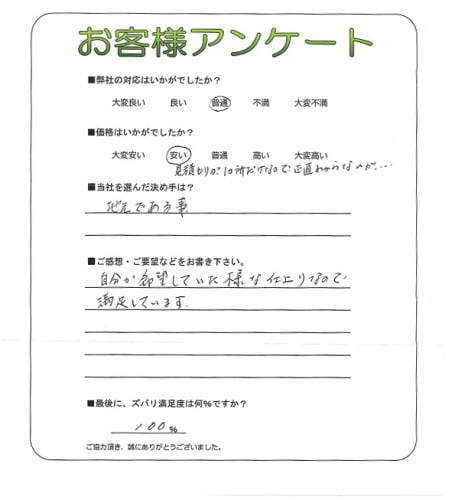 お客様アンケート
■弊社の対応はいかがでしたか？
大変良い 良い 普通 不満 大変不満
■価格はいかがでしたか？
大変安い 安い 普通 高い 大変高い
見積りが1ヶ所だけなので正直わからないが…
■当社を選んだ決め手は？
地元である事
■ご感想・ご要望などをお書き下さい。
自分が希望していた様な仕上りなので
満足しています
■最後に、ズバリ満足度は何%ですか？
100%
ご協力頂き、誠にありがとうございました。